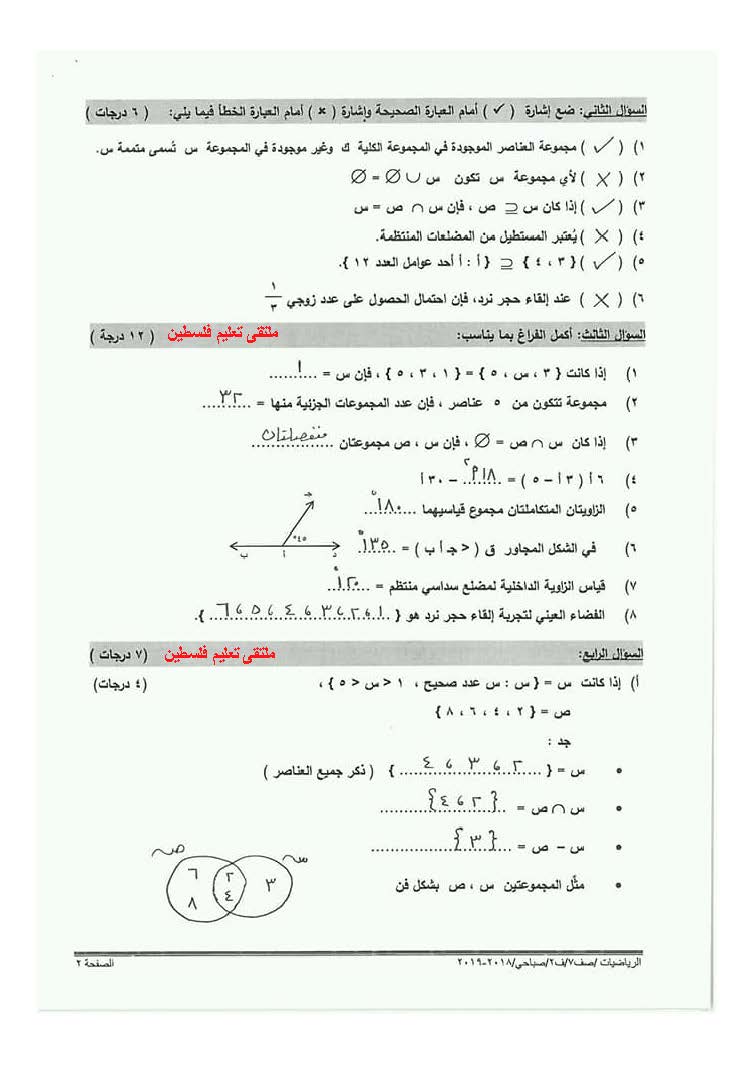 السؤال الثاني: ضع إشارة ( ✓ ) أمام العبارة الصحيحة وإشارة ( × ) أمام العبارة الخطأ فيما يلي: ( ٦ درجات )
١) ( ✓ ) مجموعة العناصر الموجودة في المجموعة الكلية ك وغير موجودة في المجموعة س تُسمى متممة س.
٢) ( × ) لأي مجموعة س تكون س ∪ ∅ = ∅
٣) ( ✓ ) إذا كان س ⊇ ص ، فإن س ∩ ص = س
٤) ( × ) يُعتبر المستطيل من المضلعات المنتظمة.
٥) ( ✓ ) { ٣ ، ٤ } ⊇ { أ : أ أحد عوامل العدد ١٢ }.
٦) ( × ) عند إلقاء حجر نرد، فإن احتمال الحصول على عدد زوجي ١/٣
السؤال الثالث: أكمل الفراغ بما يناسب: ( ١٢ درجة ) ملتقى تعليم فلسطين
١) إذا كانت { ٣ ، س ، ٥ } = { ١ ، ٣ ، ٥ } ، فإن س = ...١...
٢) مجموعة تتكون من ٥ عناصر ، فإن عدد المجموعات الجزئية منها = ...٣٢...
٣) إذا كان س ∩ ص = ∅ ، فإن س ، ص مجموعتان ...منفصلتان...
٤) ٦أ ( ٣أ – ٥ ) = ...١٨أ٢... – ٣٠أ
٥) الزاويتان المتكاملتان مجموع قياسيهما ...١٨٠°...
٦) في الشكل المجاور ق ( > جـ أ ب ) = ...١٣٥°...
جـ
٤٥°
د أ ب
٧) قياس الزاوية الداخلية لمضلع سداسي منتظم = ...١٢٠°...
٨) الفضاء العيني لتجربة إلقاء حجر نرد هو { ...١ ، ٢ ، ٣ ، ٤ ، ٥ ، ٦... }.
السؤال الرابع: (٧ درجات ) ملتقى تعليم فلسطين
أ) إذا كانت س = { س : س عدد صحيح ، ١ < س < ٥ } ، (٤ درجات)
ص = { ٢ ، ٤ ، ٦ ، ٨ }
جد :
• س = { ...٢ ، ٣ ، ٤... } ( ذكر جميع العناصر )
• س ∩ ص = ...{ ٢ ، ٤ }...
• س – ص = ...{ ٣ }...
• مثّل المجموعتين س ، ص بشكل فن
س ص
٣ ٢ ٦
٤ ٨
الرياضيات /صف٧/ف٢/صباحي/٢٠١٨-٢٠١٩ الصفحة ٢